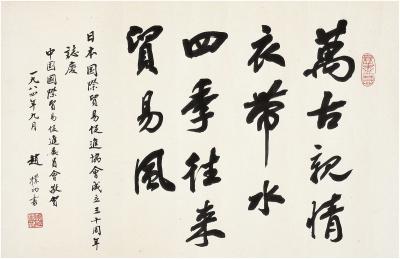 萬古親情
衣带水
四季往来
貿易風
日本国際貿易促進協会成立三十周年
誌慶
中国国際貿易促進委員会敬賀
一九八四年九月
趙樸初書